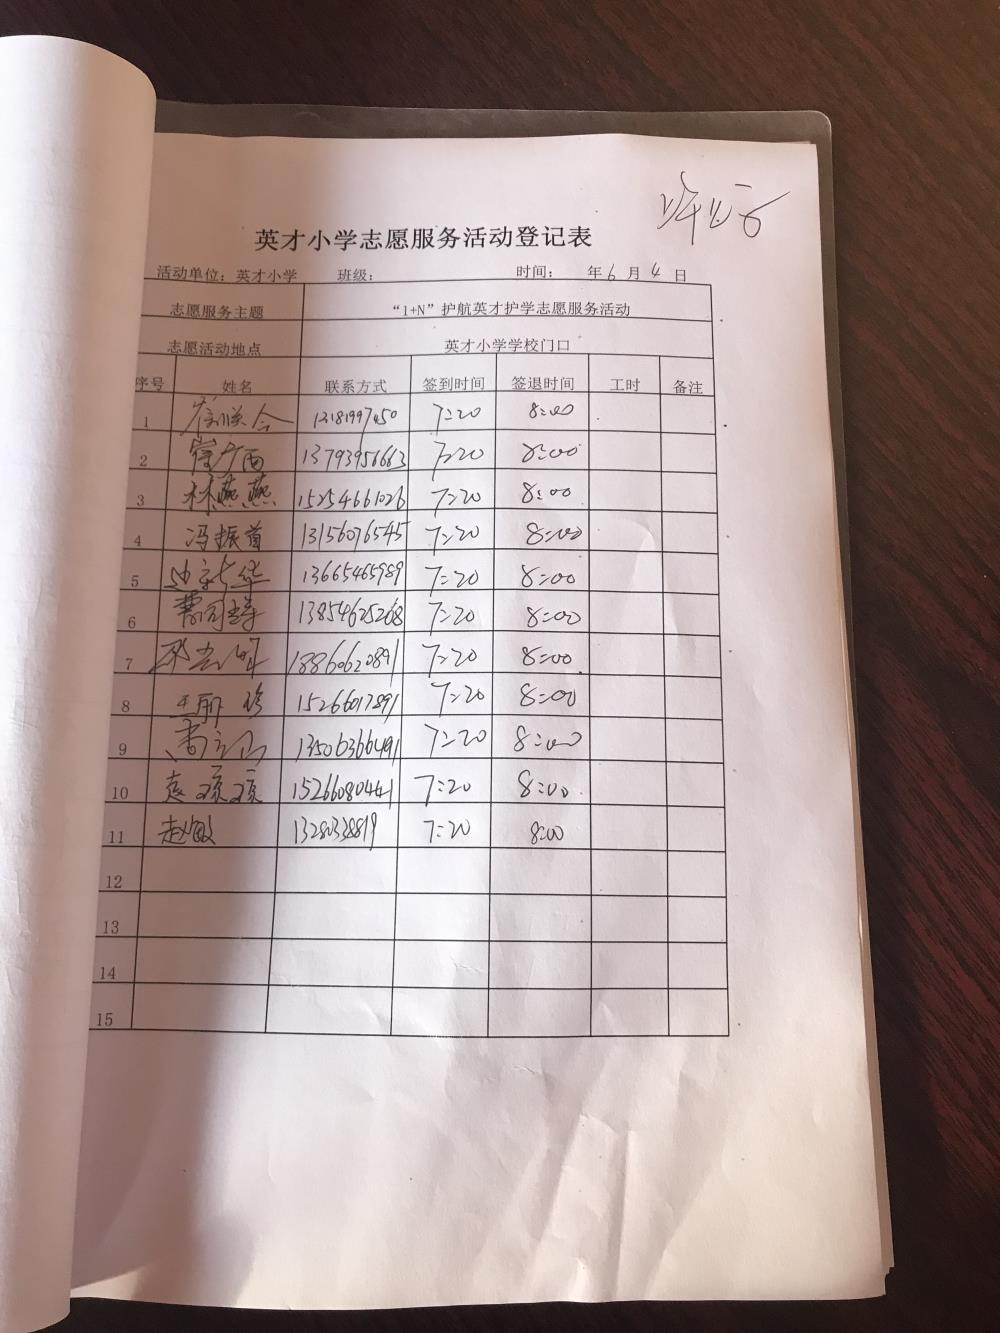 英才小学志愿服务活动登记表
活动单位：英才小学 班级： 时间： 年6月4日
志愿服务主题 “1+N”护航英才护学志愿服务活动
志愿活动地点 英才小学学校门口
序号 姓名 联系方式 签到时间 签退时间 工时 备注
1 13181997450 7:20 8:00
2 崔广西 13793956663 7:20 8:00
3 林燕燕 15254661026 7:20 8:00
4 冯振首 13156076545 7:20 8:00
5 13665465989 7:20 8:00
6 13854625268 7:20 8:00
7 18860620891 7:20 8:00
8 王丽珍 15266017891 7:20 8:00
9 13506366491 7:20 8:00
10 15266080441 7:20 8:00
11 赵敏 1328038819 7:20 8:00
12
13
14
15